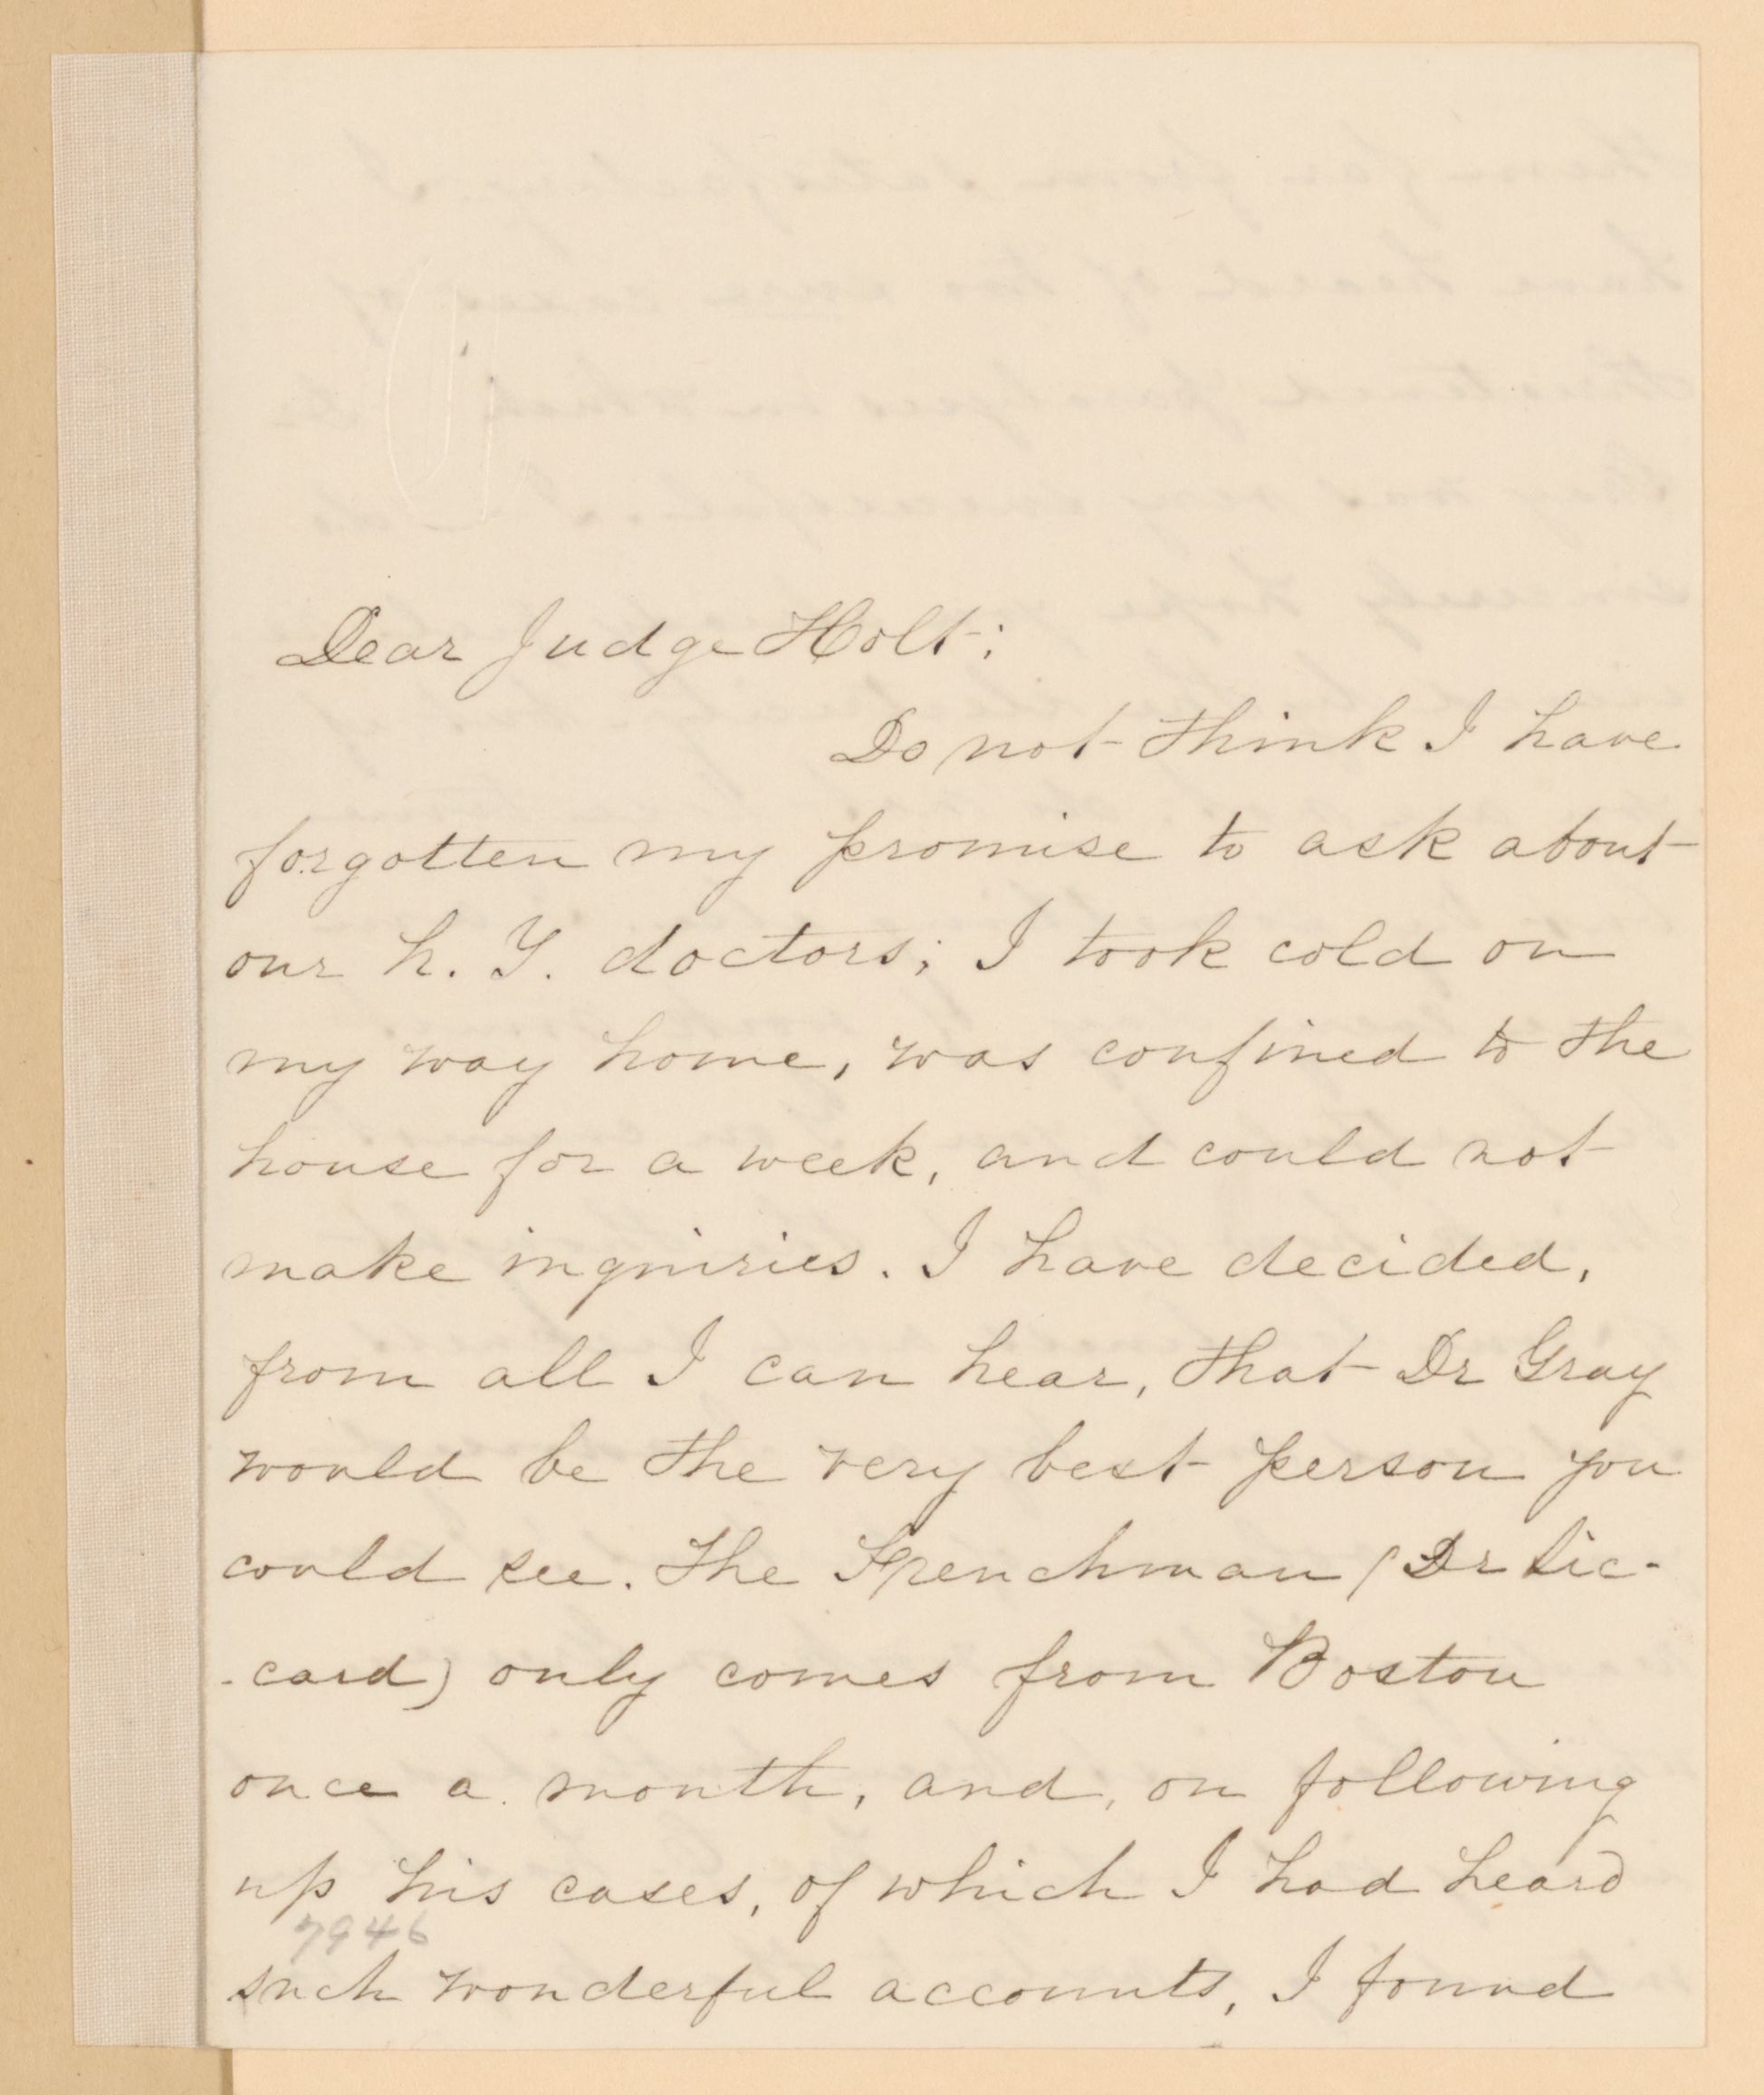 Dear Judge Holt:
Do not think I have
forgotten my promise to ask about
our N. Y. doctors; I took cold on
my way home, was confined to the
house for a week, and could not
make inquiries. I have decided,
from all I can hear, that Dr Gray
would be the very best person you
could see. The Frenchman (Dr Sic-
-card) only comes from Boston
once a month, and, on following
up his cases, of which I had heard
7946
such wonderful accounts, I found